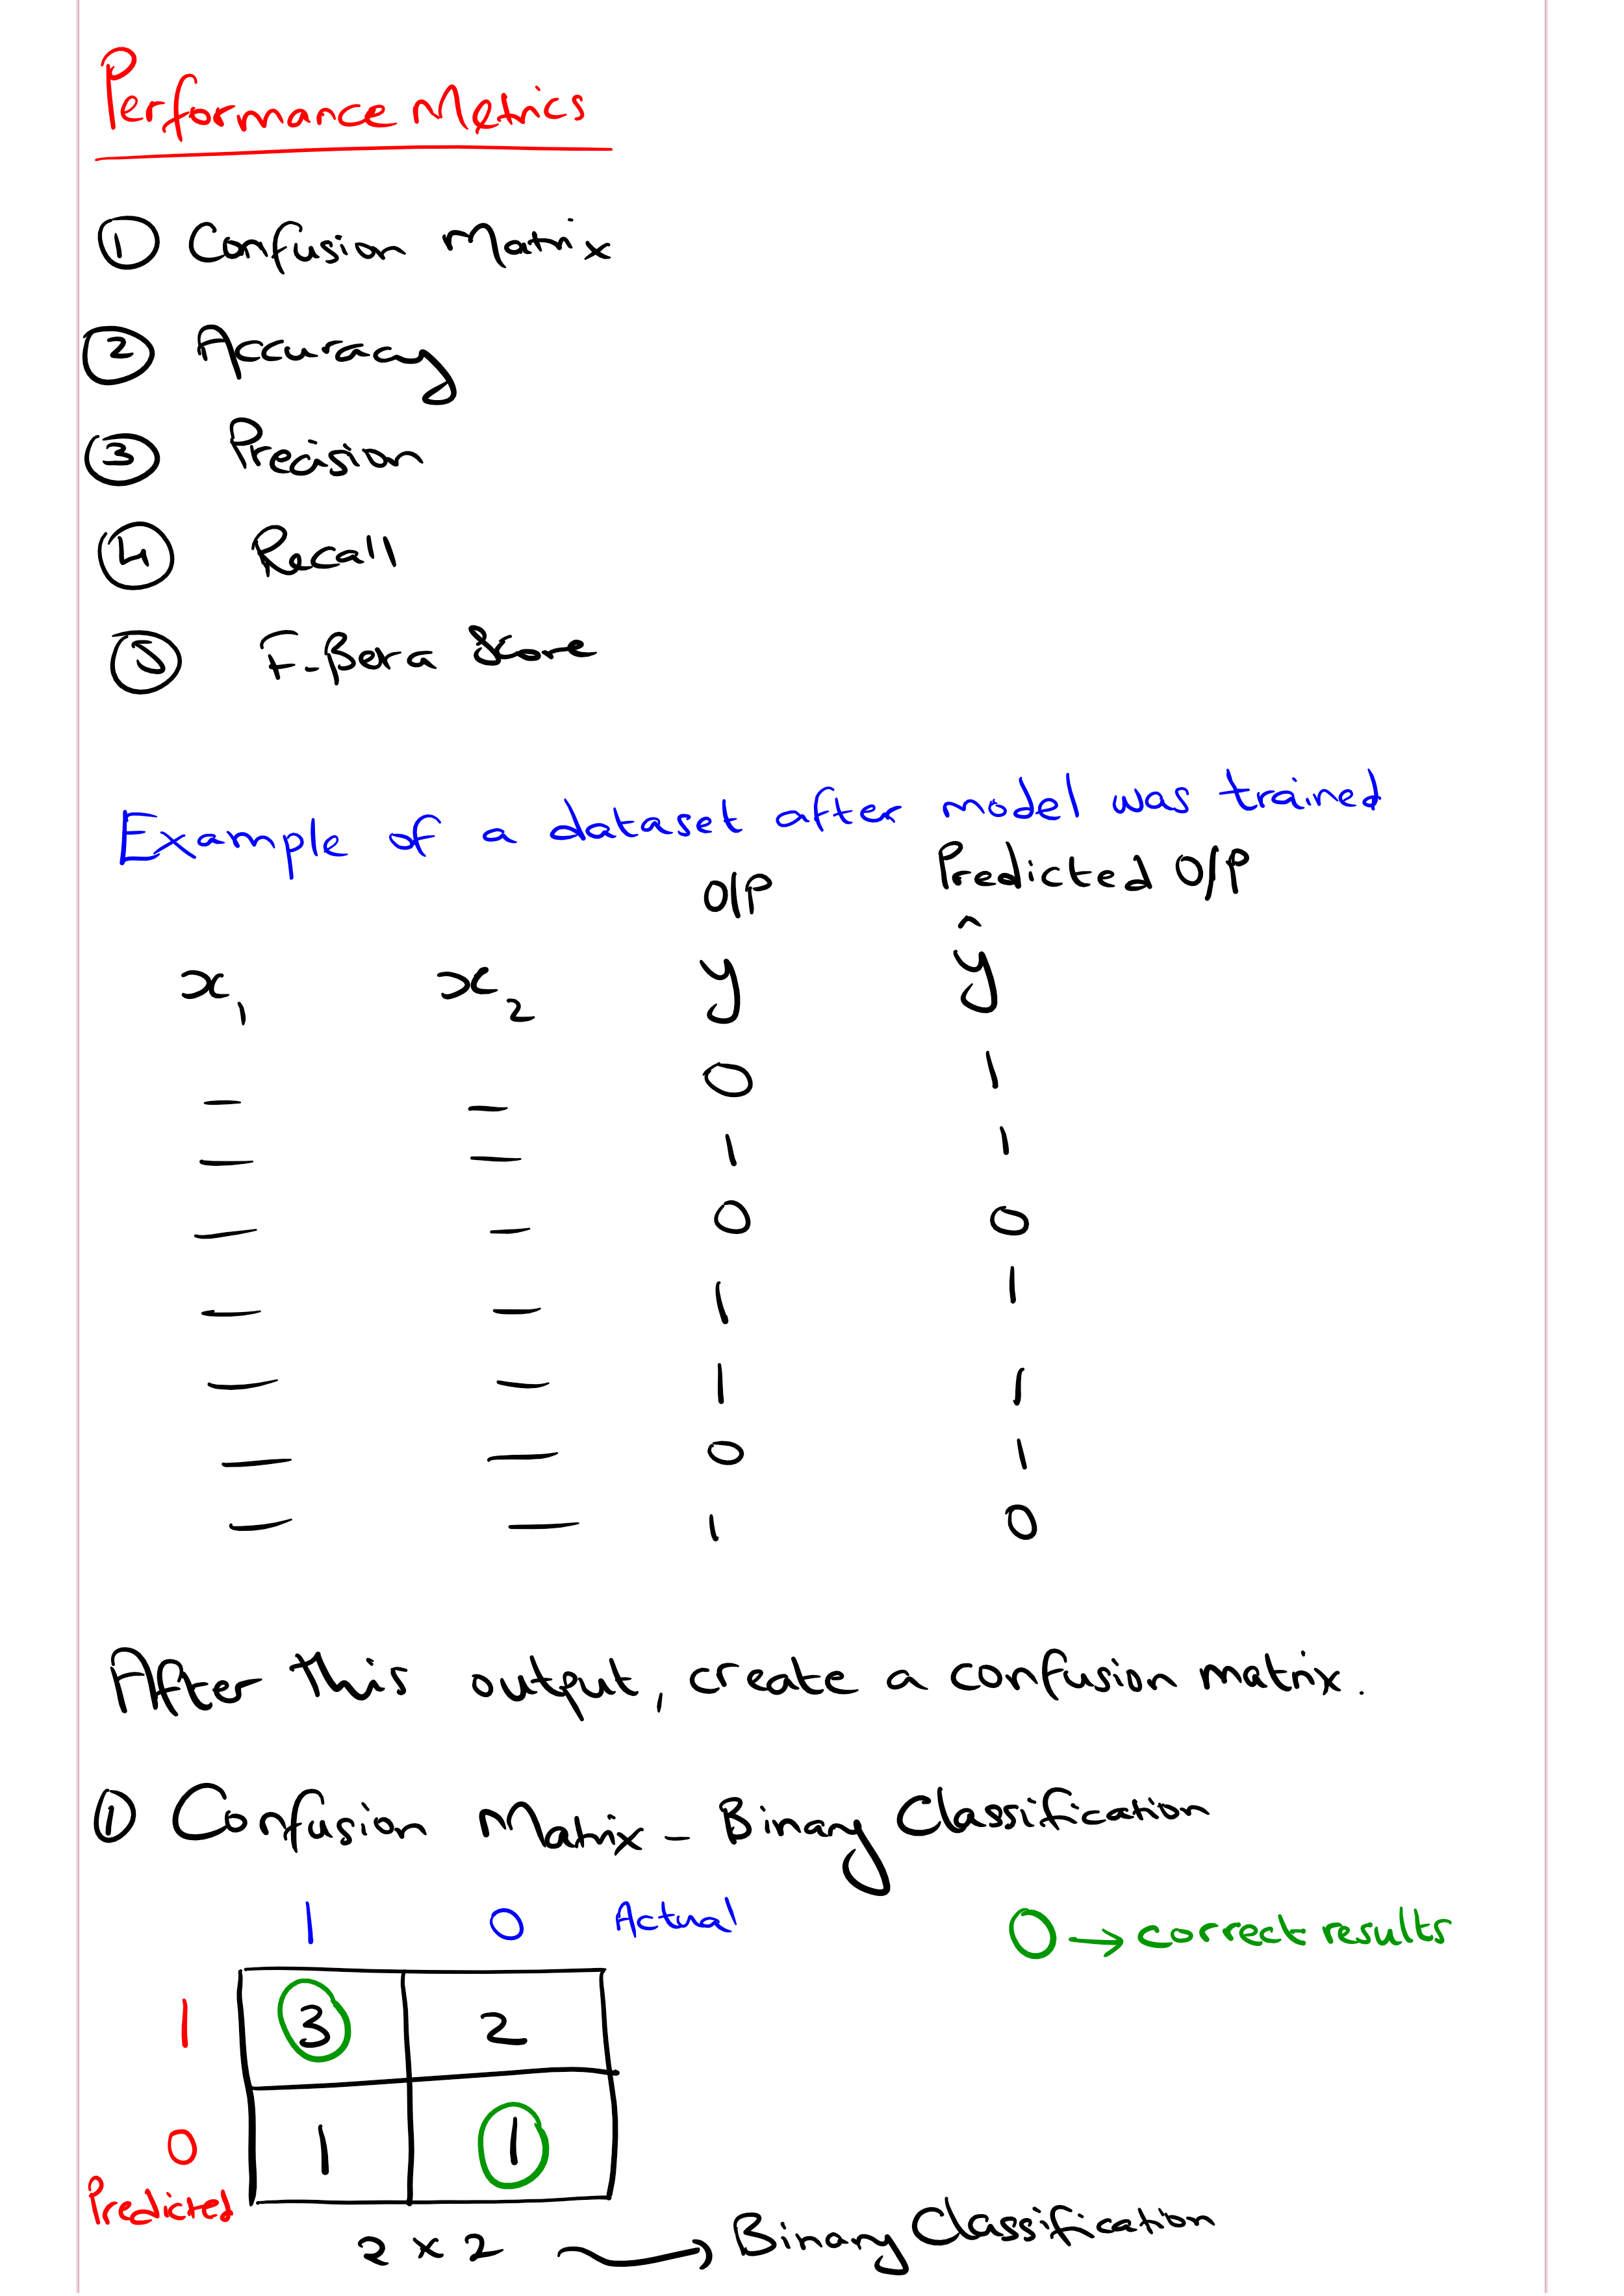 Performance Metrics
① Confusion Matrix
② Accuracy
③ Precision
④ Recall
⑤ F-Beta Score
Example of a dataset after model was trained
O/P Predicted O/P
x₁ x₂ y ŷ
— — 0 1
— — 1 1
— — 0 0
— — 1 1
— — 1 1
— — 0 1
— — 1 0
After this output, create a confusion matrix.
① Confusion Matrix - Binary Classification
1 0 Actual O → correct results
1 3 2
0 1 1
Predicted
2 x 2 → Binary Classification